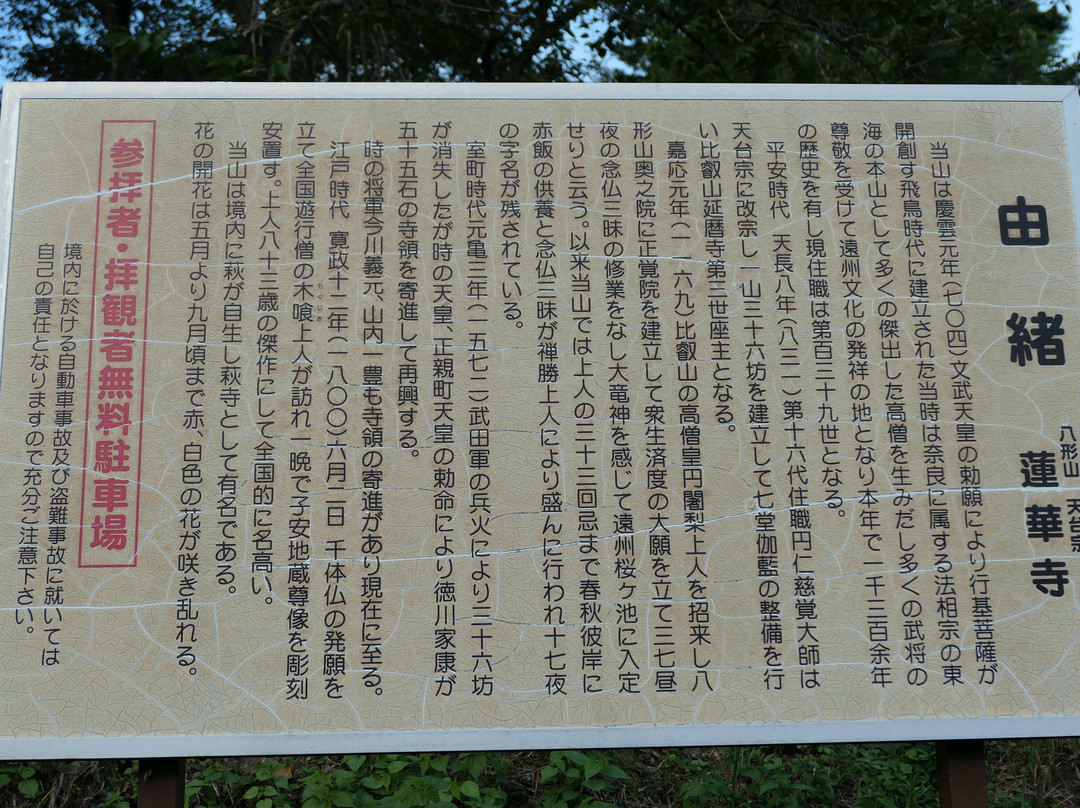 由緒
八形山 天台宗
蓮華寺
当山は慶雲元年(七〇四)文武天皇の勅願により行基菩薩が
開創す飛鳥時代に建立された当時は奈良に属する法相宗の東
海の本山として多くの傑出した高僧を生みだし多くの武将の
尊敬を受けて遠州文化の発祥の地となり本年で一千三百余年
の歴史を有し現住職は第百三十九世となる。
平安時代 天長八年(八三一)第十六代住職円仁慈覚大師は
天台宗に改宗し一山三十六坊を建立して七堂伽藍の整備を行
い比叡山延暦寺第三世座主となる。
嘉応元年(一一六九)比叡山の高僧皇円闍梨上人を招来し八
形山奥之院に正覚院を建立して衆生済度の大願を立て三七昼
夜の念仏三昧の修業をなし大竜神を感じて遠州桜ヶ池に入定
せりと云う。以来当山では上人の三十三回忌まで春秋彼岸に
赤飯の供養と念仏三昧が禅勝上人により盛んに行われ十七夜
の字名が残されている。
室町時代元亀三年(一五七二)武田軍の兵火により三十六坊
が消失したが時の天皇、正親町天皇の勅命により徳川家康が
五十五石の寺領を寄進して再興する。
時の将軍今川義元、山内一豊も寺領の寄進があり現在に至る。
江戸時代 寛政十二年(一八〇〇)六月二日 千体仏の発願を
立て全国遊行僧の木喰上人が訪れ一晩で子安地蔵尊像を彫刻
もくじき
安置す。上人八十三歳の傑作にして全国的に名高い。
当山は境内に萩が自生し萩寺として有名である。
花の開花は五月より九月頃まで赤、白色の花が咲き乱れる。
参拝者・拝観者無料駐車場
境内に於ける自動車事故及び盗難事故に就いては
自己の責任となりますので充分ご注意下さい。